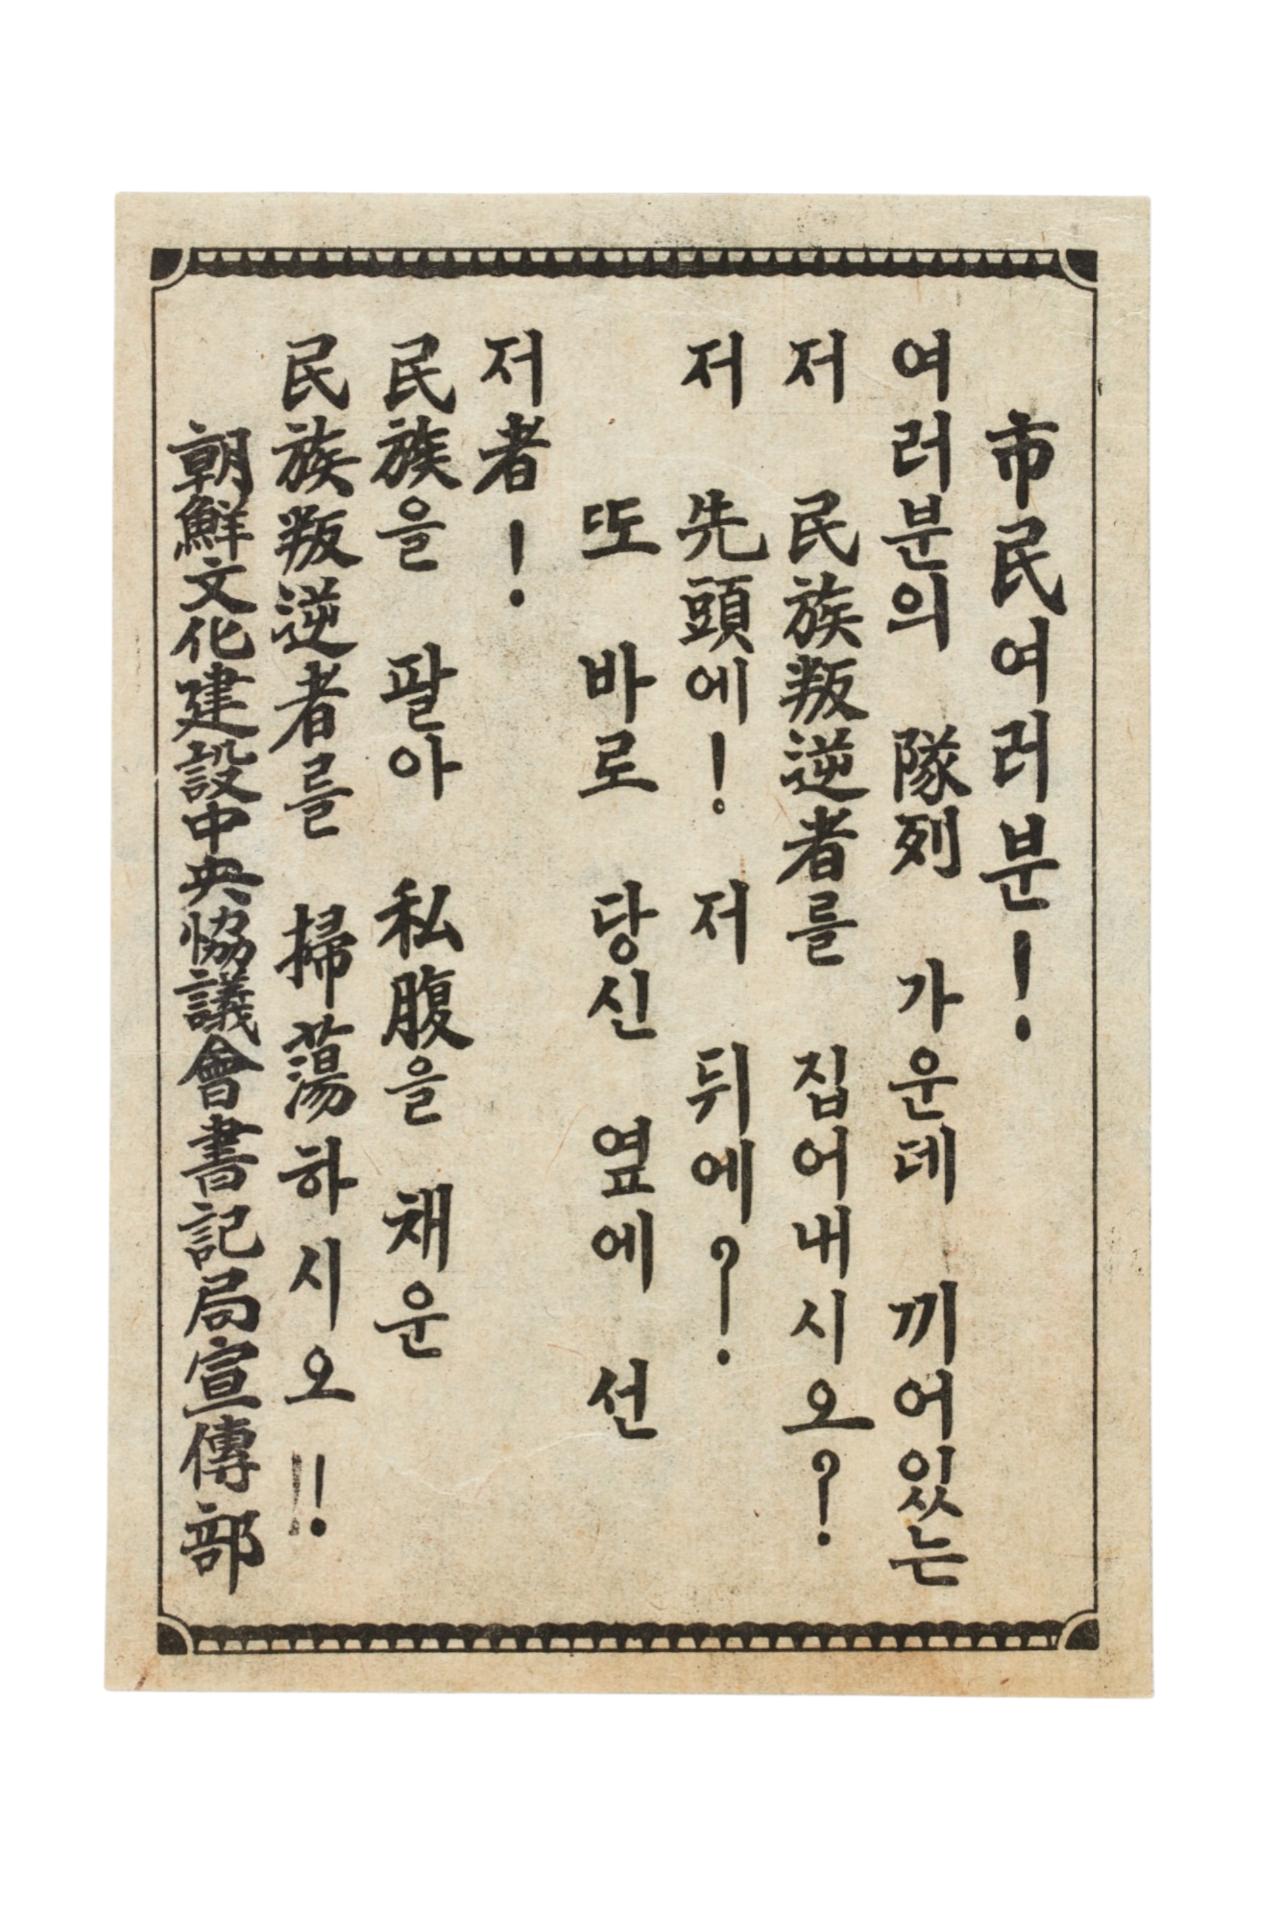 市民여러분!
여러분의 隊列 가운데 끼어있는
저 民族叛逆者를 집어내시오?
저 先頭에! 저 뒤에?
또 바로 당신 옆에 선
저者!
民族을 팔아 私腹을 채운
民族叛逆者를 掃蕩하시오!!
朝鮮文化建設中央協議會書記局宣傳部